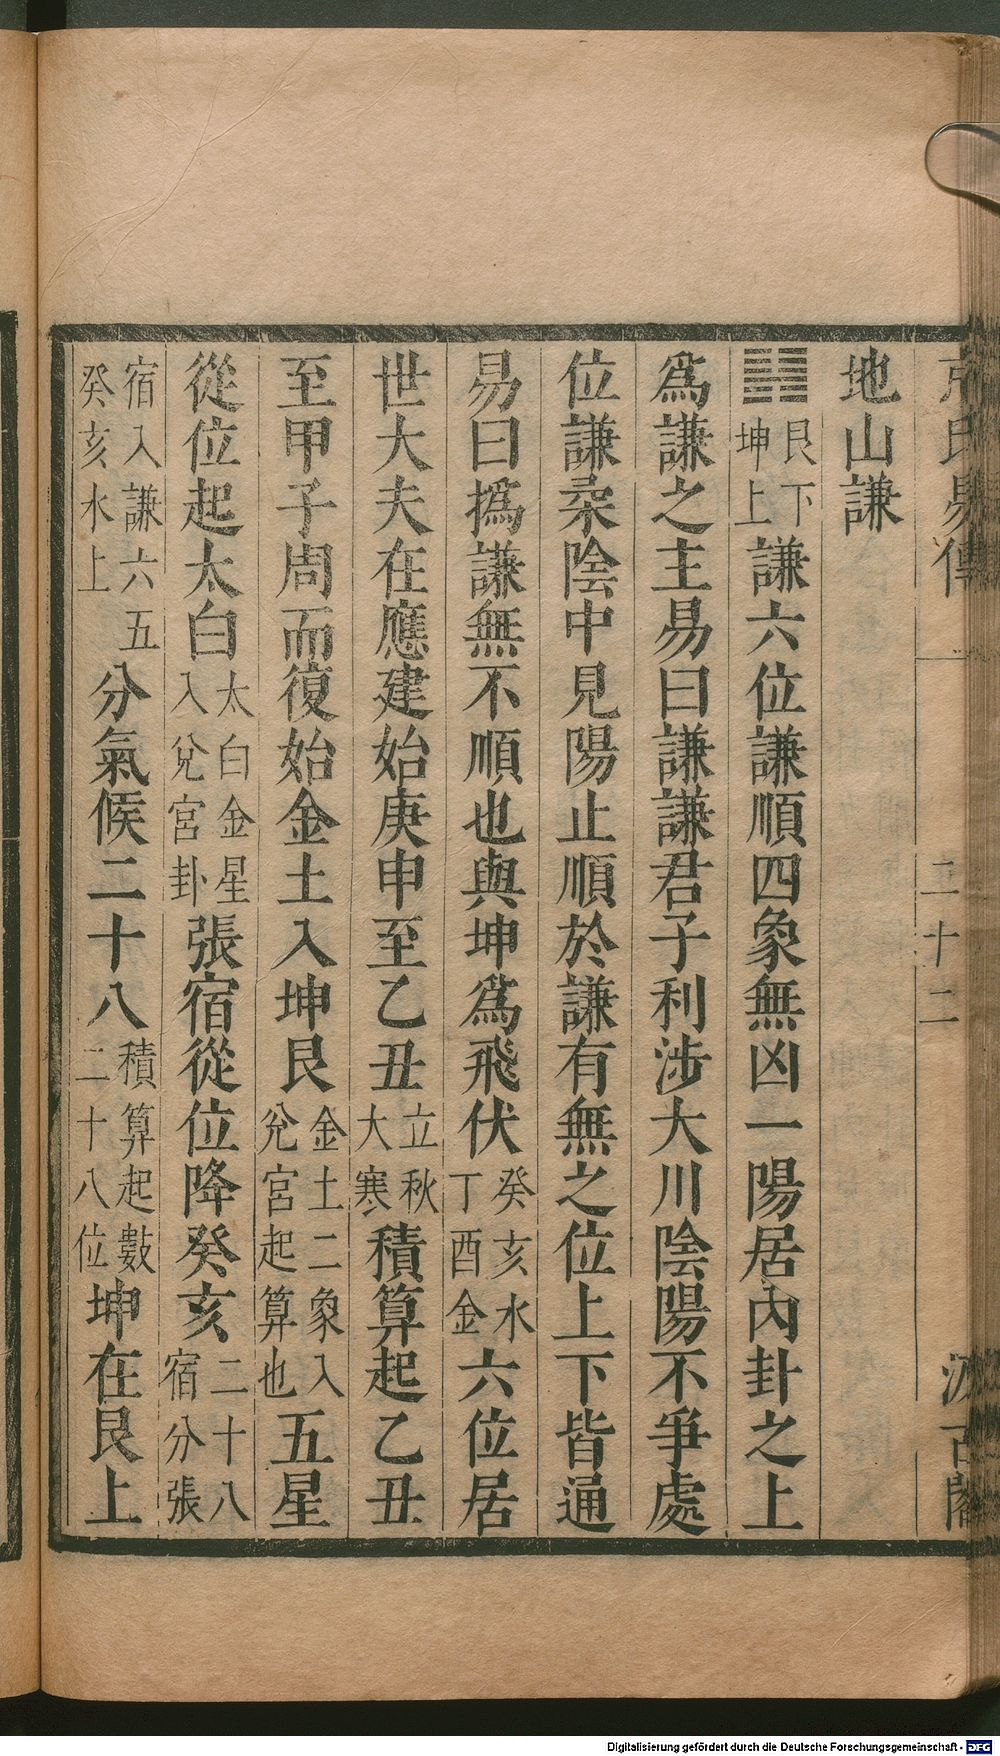 京氏易傳 二十二 汲古閣
地山謙
䷎艮下坤上謙六位謙順四象無凶一陽居內卦之上
爲謙之主易曰謙謙君子利涉大川陰陽不爭處
位謙柔陰中見陽止順於謙有無之位上下皆通
易曰撝謙無不順也與坤爲飛伏癸亥水丁酉金六位居
世大夫在應建始庚申至乙丑立秋大寒積算起乙丑
至甲子周而復始金土入坤艮金土二象入兌宮起算也五星
從位起太白太白金星入兌宮卦張宿從位降癸亥二十八宿分張
宿入謙六五癸亥水上分氣候二十八積算起數二十八位坤在艮上
Digitalisierung gefördert durch die Deutsche Forschungsgemeinschaft - DFG